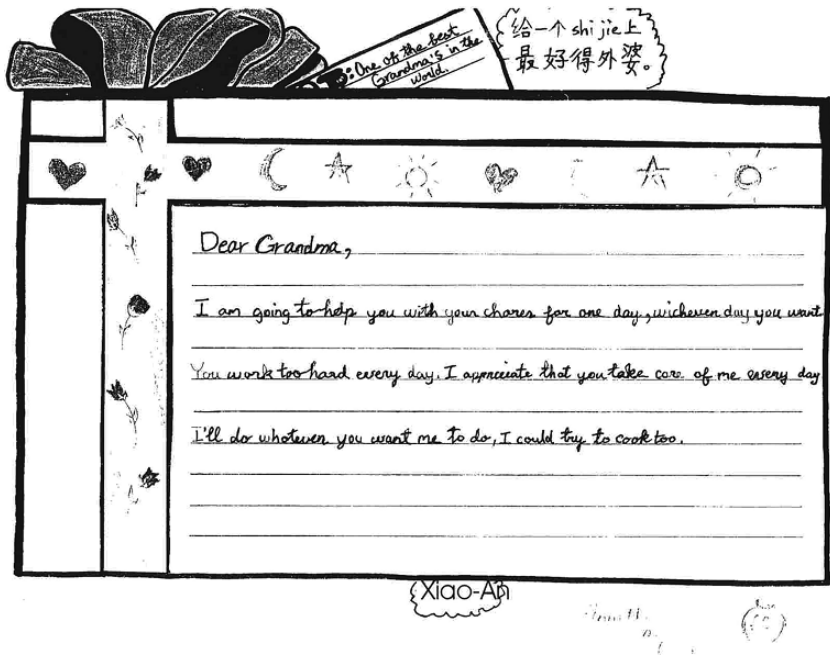 : One of the best
Grandma's in the
world.
给一个 shi jie 上
最好得外婆。
Dear Grandma,
I am going to help you with your chores for one day, wichever day you want
You work too hard every day. I appreciate that you take care of me every day
I'll do whatever you want me to do, I could try to cook too.
Xiao-An